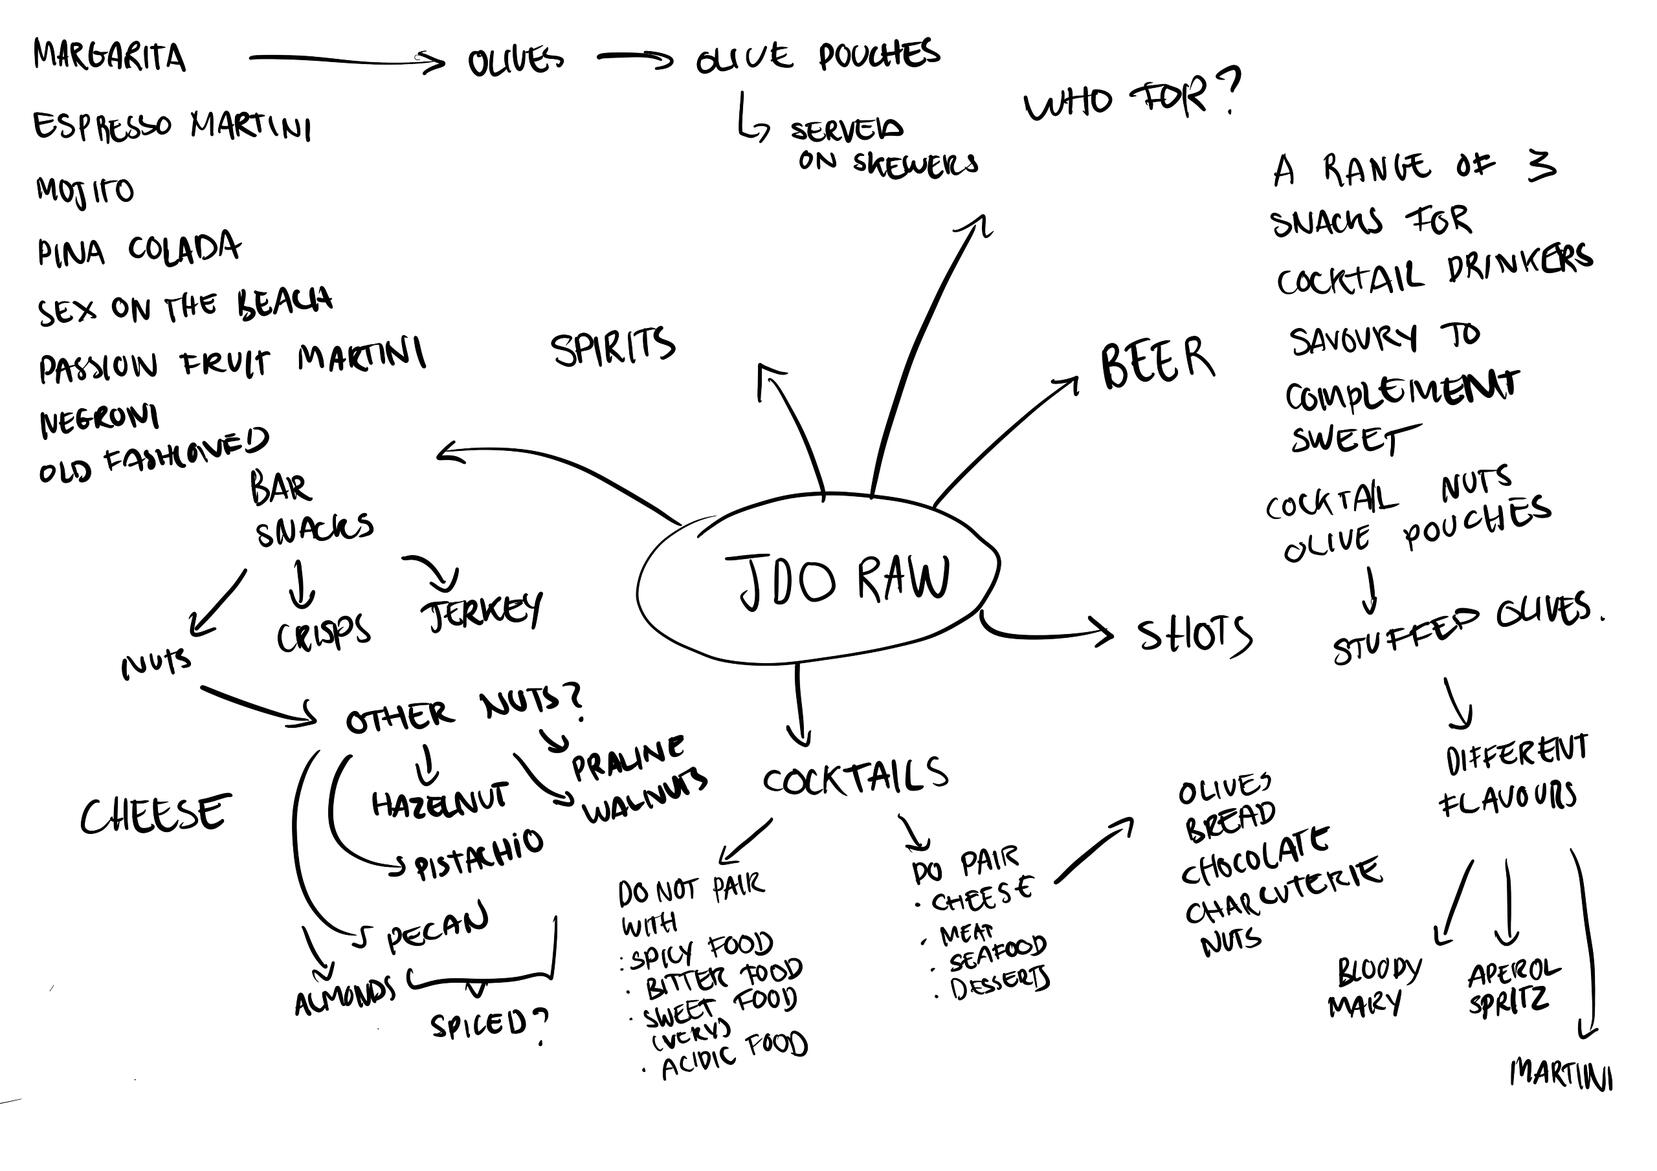 MARGARITA
OLIVES
OLIVE POUCHES
SERVED
ON SKEWERS
WHO FOR?
ESPRESSO MARTINI
MOJITO
PINA COLADA
SEX ON THE BEACH
PASSION FRUIT MARTINI
NEGRONI
OLD FASHIONED
SPIRITS
BEER
A RANGE OF 3
SNACKS FOR
COCKTAIL DRINKERS
SAVOURY TO
COMPLEMENT
SWEET
COCKTAIL NUTS
OLIVE POUCHES
STUFFED OLIVES.
DIFFERENT
FLAVOURS
BLOODY
MARY
APEROL
SPRITZ
MARTINI
BAR
SNACKS
NUTS
CRISPS
JERKEY
JDO RAW
SHOTS
OTHER NUTS?
PRALINE
WALNUTS
HAZELNUT
PISTACHIO
PECAN
ALMONDS
SPICED?
CHEESE
COCKTAILS
DO NOT PAIR
WITH
: SPICY FOOD
· BITTER FOOD
· SWEET FOOD
(VERY)
· ACIDIC FOOD
DO PAIR
· CHEESE
· MEAT
· SEAFOOD
· DESSERTS
OLIVES
BREAD
CHOCOLATE
CHARCUTERIE
NUTS